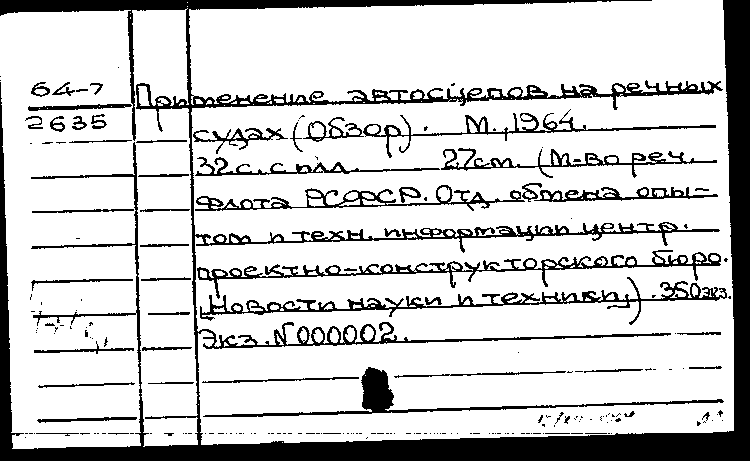 64-7
2635
Применение автосцепов на речных
судах (Обзор). М., 1964.
32 с. с илл. 27 cm. (М-во реч.
флота РСФСР. Отд. обмена опы-
том и техн. информации центр.
проектно-конструкторского бюро.
"Новости науки и техники"). 350 экз.
Экз. N 000002.